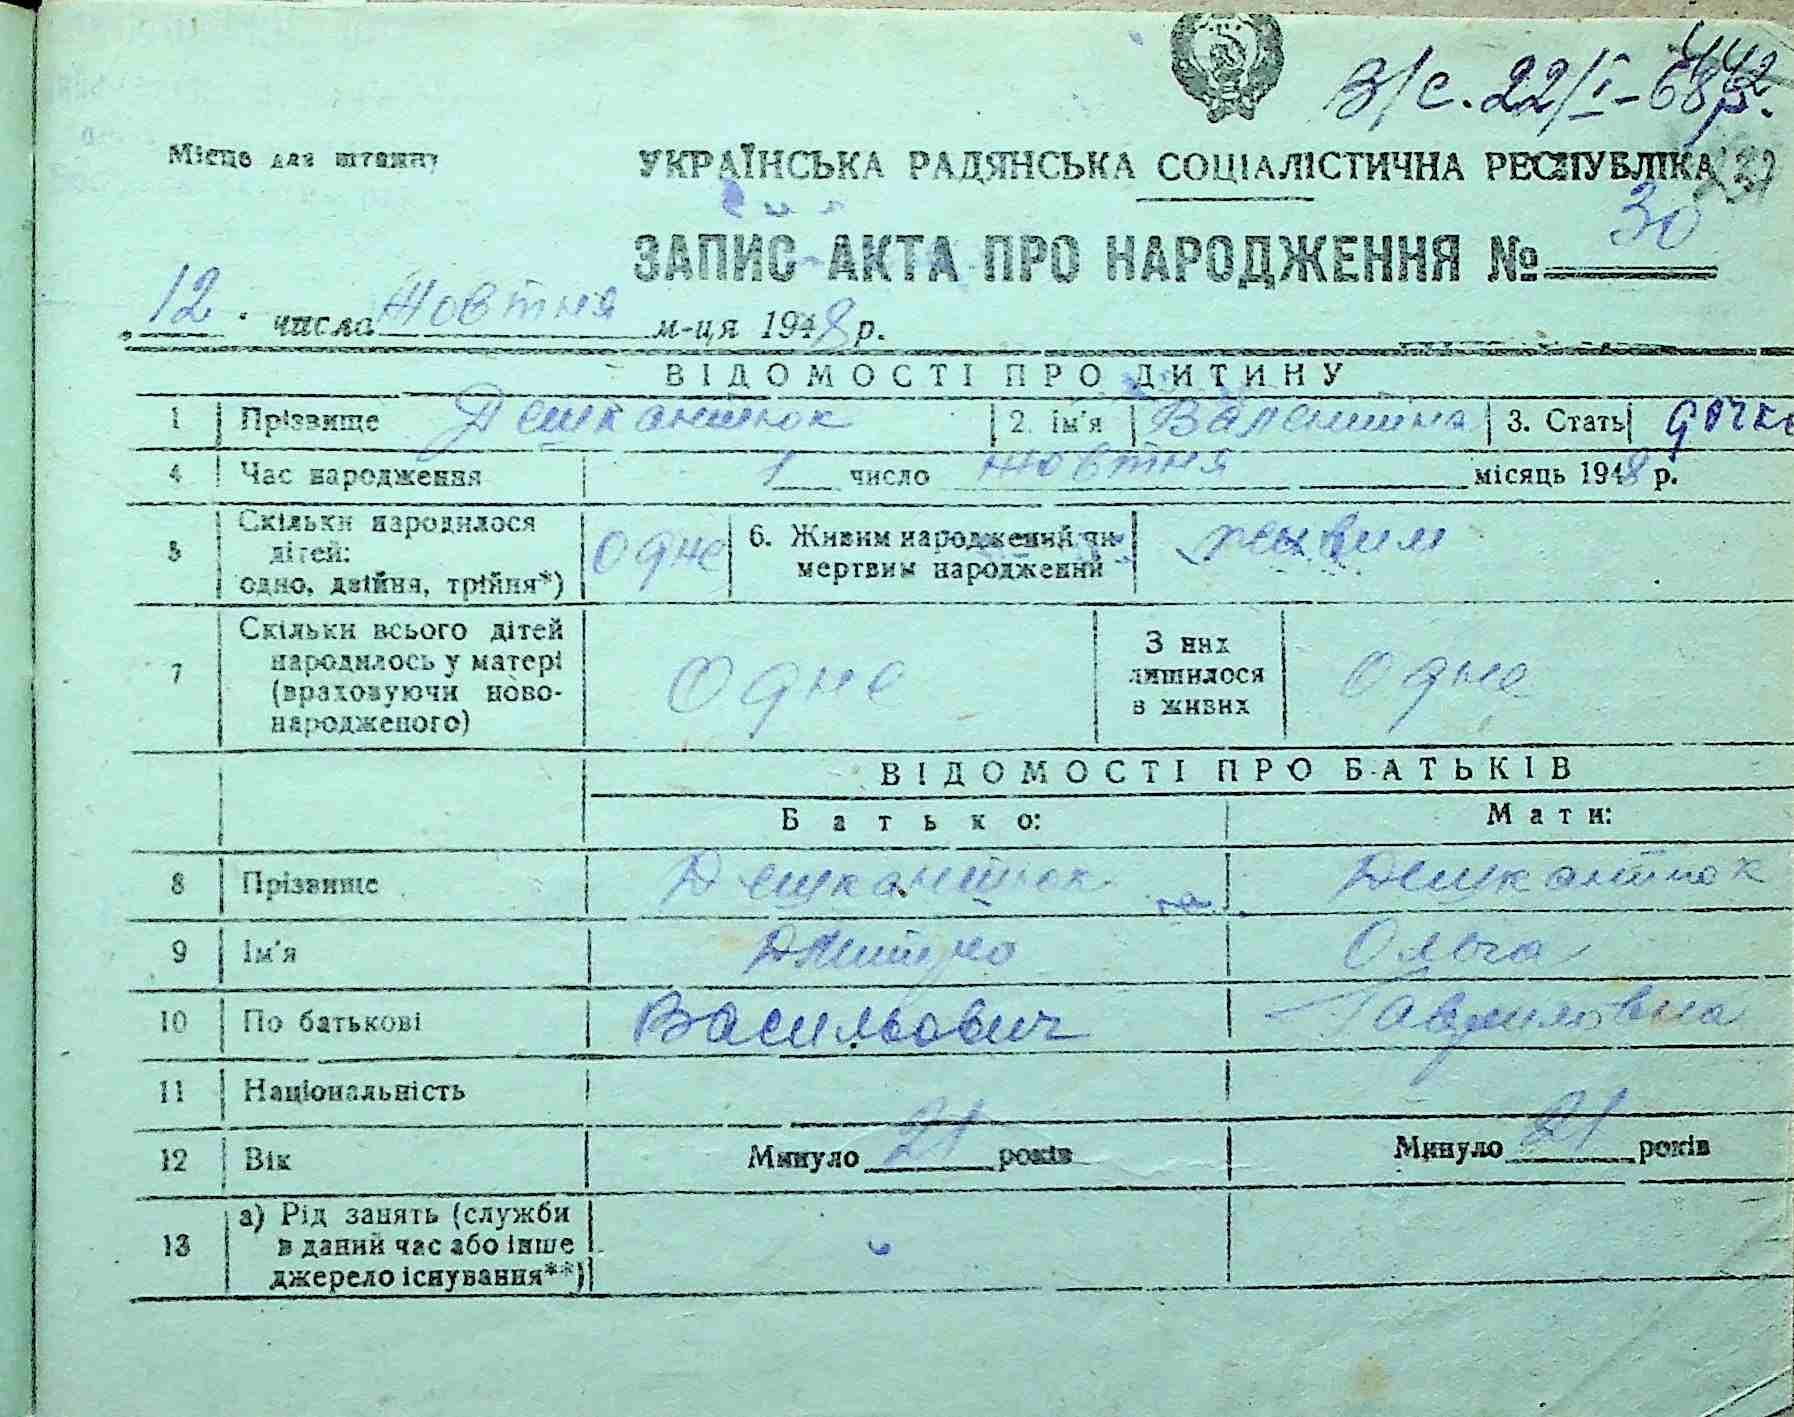 В/с. 22/I-68р.
Місце для штампу
УКРАЇНСЬКА РАДЯНСЬКА СОЦІАЛІСТИЧНА РЕСПУБЛІКА
ЗАПИС АКТА ПРО НАРОДЖЕННЯ № 30
„12" числа Жовтня м-ця 1948 р.
ВІДОМОСТІ ПРО ДИТИНУ
1 Прізвище Дешкантюк 2. Ім'я Валентина 3. Стать дочка
4 Час народження 1 число жовтня місяць 1948 р.
5 Скільки народилося дітей: одно, двійня, трійня*) Одне 6. Живим народжений чи мертвим народжений живим
7 Скільки всього дітей народилось у матері (враховуючи новонародженого) Одне З них лишилося в живих Одне
ВІДОМОСТІ ПРО БАТЬКІВ
Батько: Мати:
8 Прізвище Дешкантюк Дешкантюк
9 Ім'я Дмитро Ольга
10 По батькові Васильович Гавриловна
11 Національність
12 Вік Минуло 21 років Минуло 21 років
13 а) Рід занять (служби в даний час або інше джерело існування**)